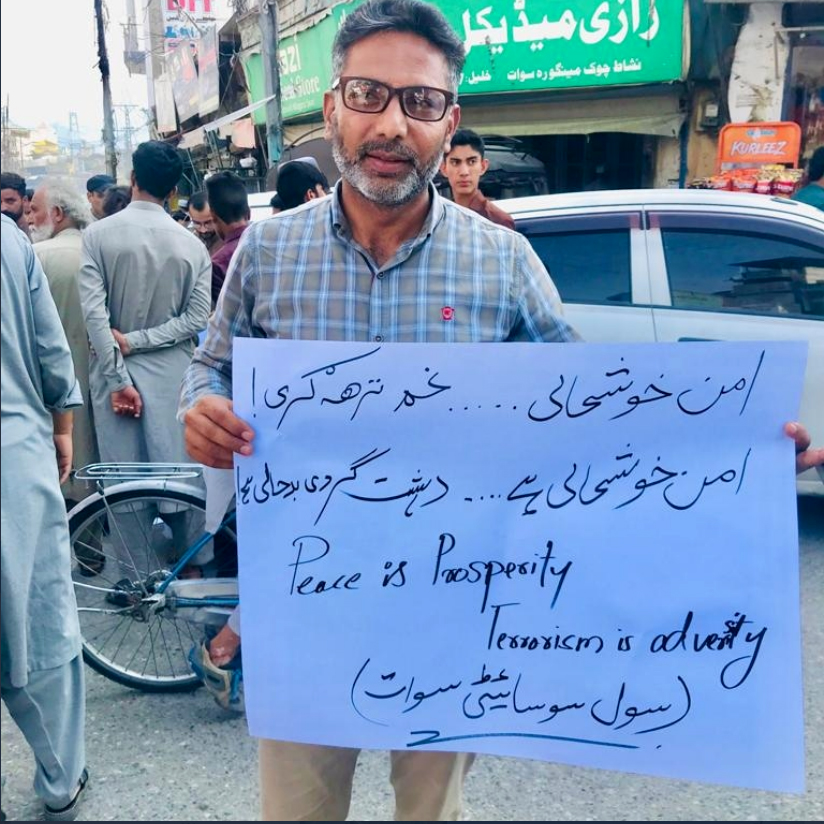 رازی میڈیکل
نشاط چوک مینگورہ سوات
Store
KURLEEZ
امن خوشحالی ..... غم ترھہ گری !
امن خوشحالی ہے .... دہشت گردی بدحالی ہے!
Peace is Prosperity
Terrorism is adversity
(سول سوسائیٹی سوات)